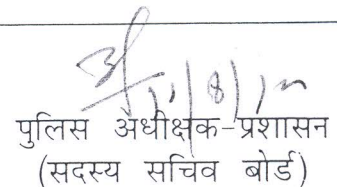 पुलिस अधीक्षक-प्रशासन
(सदस्य सचिव बोर्ड)